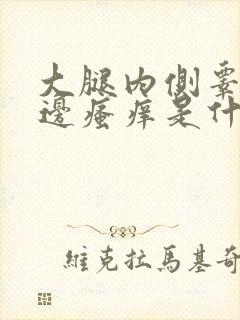 大腿内側睪
邊瘙痒是什
維克拉馬基奇